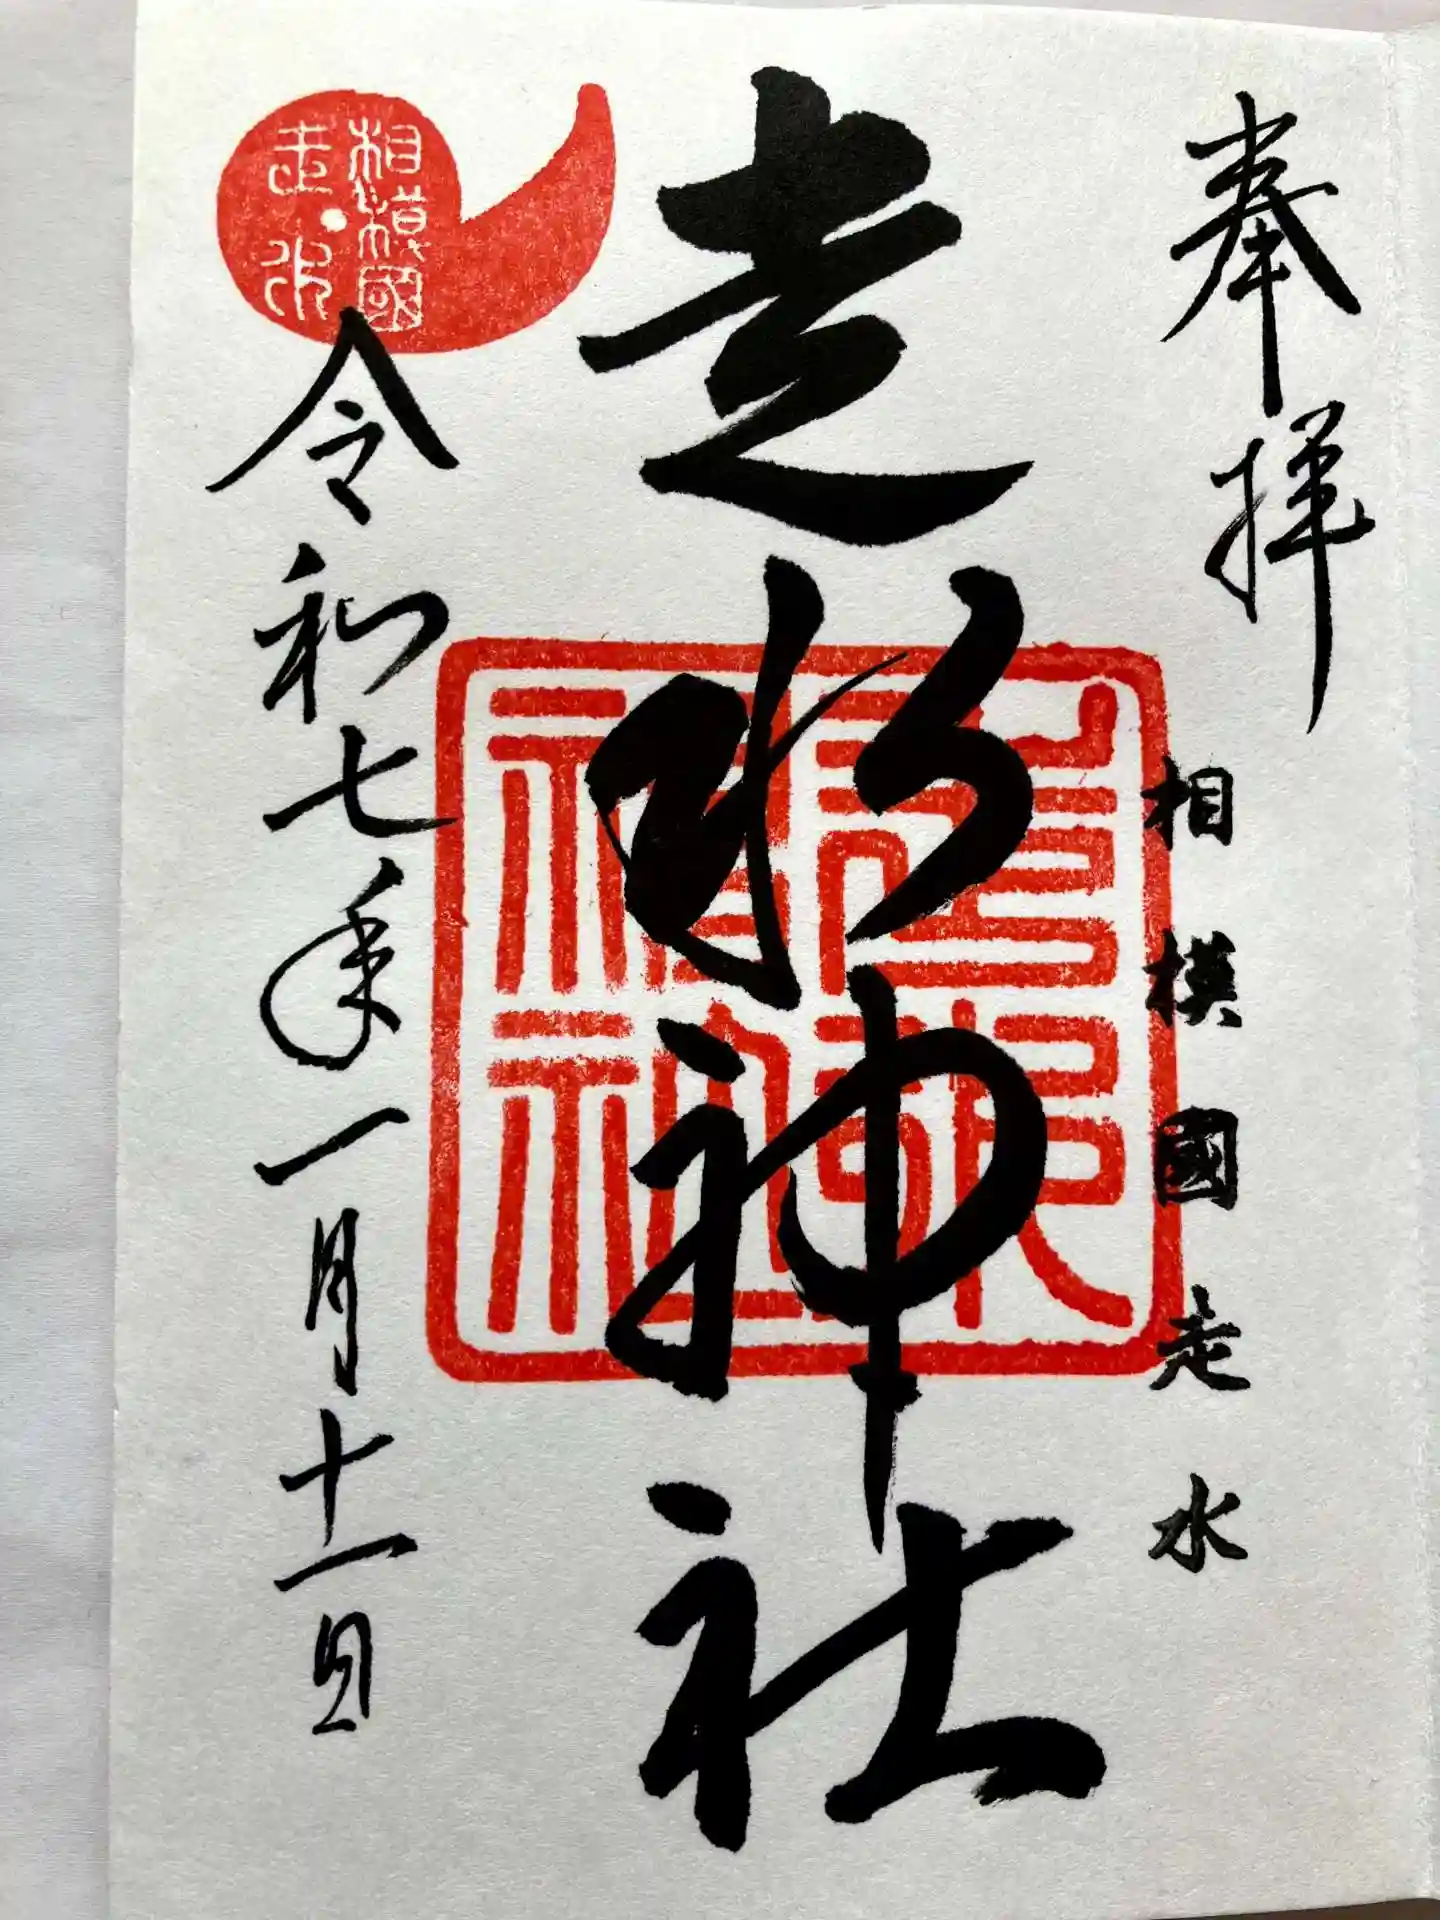 奉拝
相模國走水
走水神社
令和七年一月十一日
相模國
走水